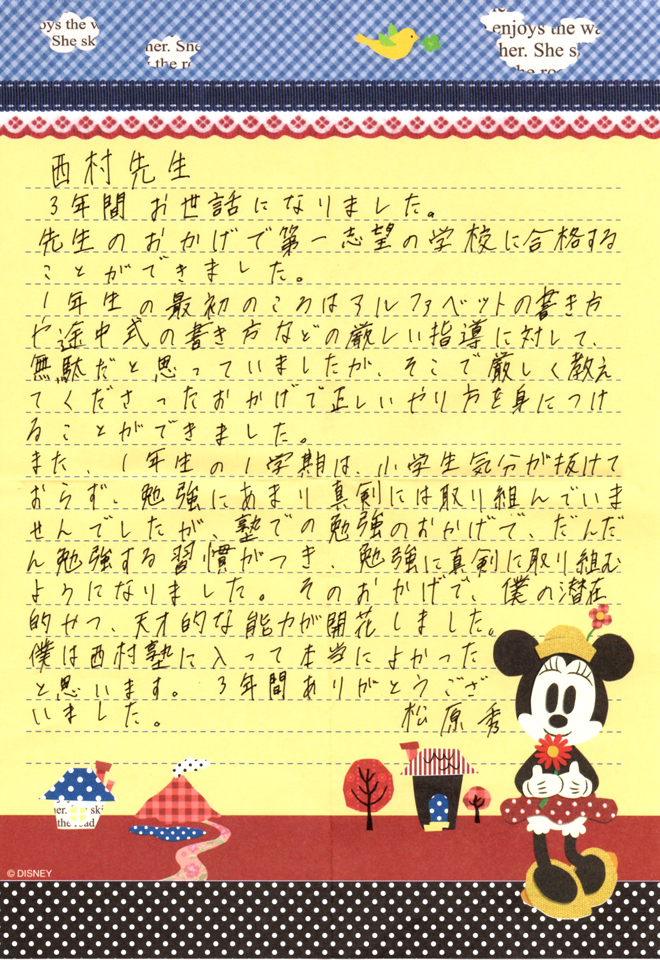 oys the w
She sk
her. She
the ro
enjoys the wa
her. She s
the roa
西村先生
3年間お世話になりました。
先生のおかげで第一志望の学校に合格する
ことができました。
1年生の最初のころはアルファベットの書き方
や途中式の書き方などの厳しい指導に対して、
無駄だと思っていましたが、そこで厳しく教え
てくださったおかげで正しいやり方を身につけ
ることができました。
また、1年生の1学期は、小学生気分が抜けて
おらず、勉強にあまり真剣には取り組んでいま
せんでしたが、塾での勉強のおかげで、だんだ
ん勉強する習慣がつき、勉強に真剣に取り組む
ようになりました。そのおかげで、僕の潜在
的かつ、天才的な能力が開花しました。
僕は西村塾に入って本当によかった
と思います。3年間ありがとうござ
いました。
松原秀
her. The ski
the road
© DISNEY